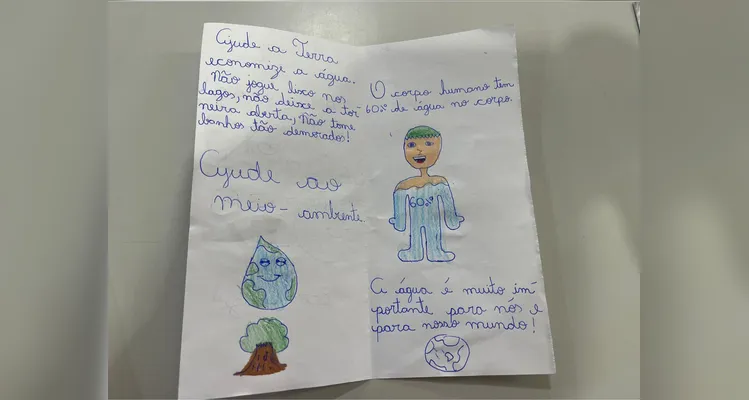 Ajude a Terra
economize a água.
Não jogue lixo nos
lagos, não deixe a tor-
neira aberta, não tome
banhos tão demorados!
Ajude ao
meio-ambiente.
O corpo humano tem
60% de água no corpo.
60%
A água é muito im-
portante para nós e
para nosso mundo!